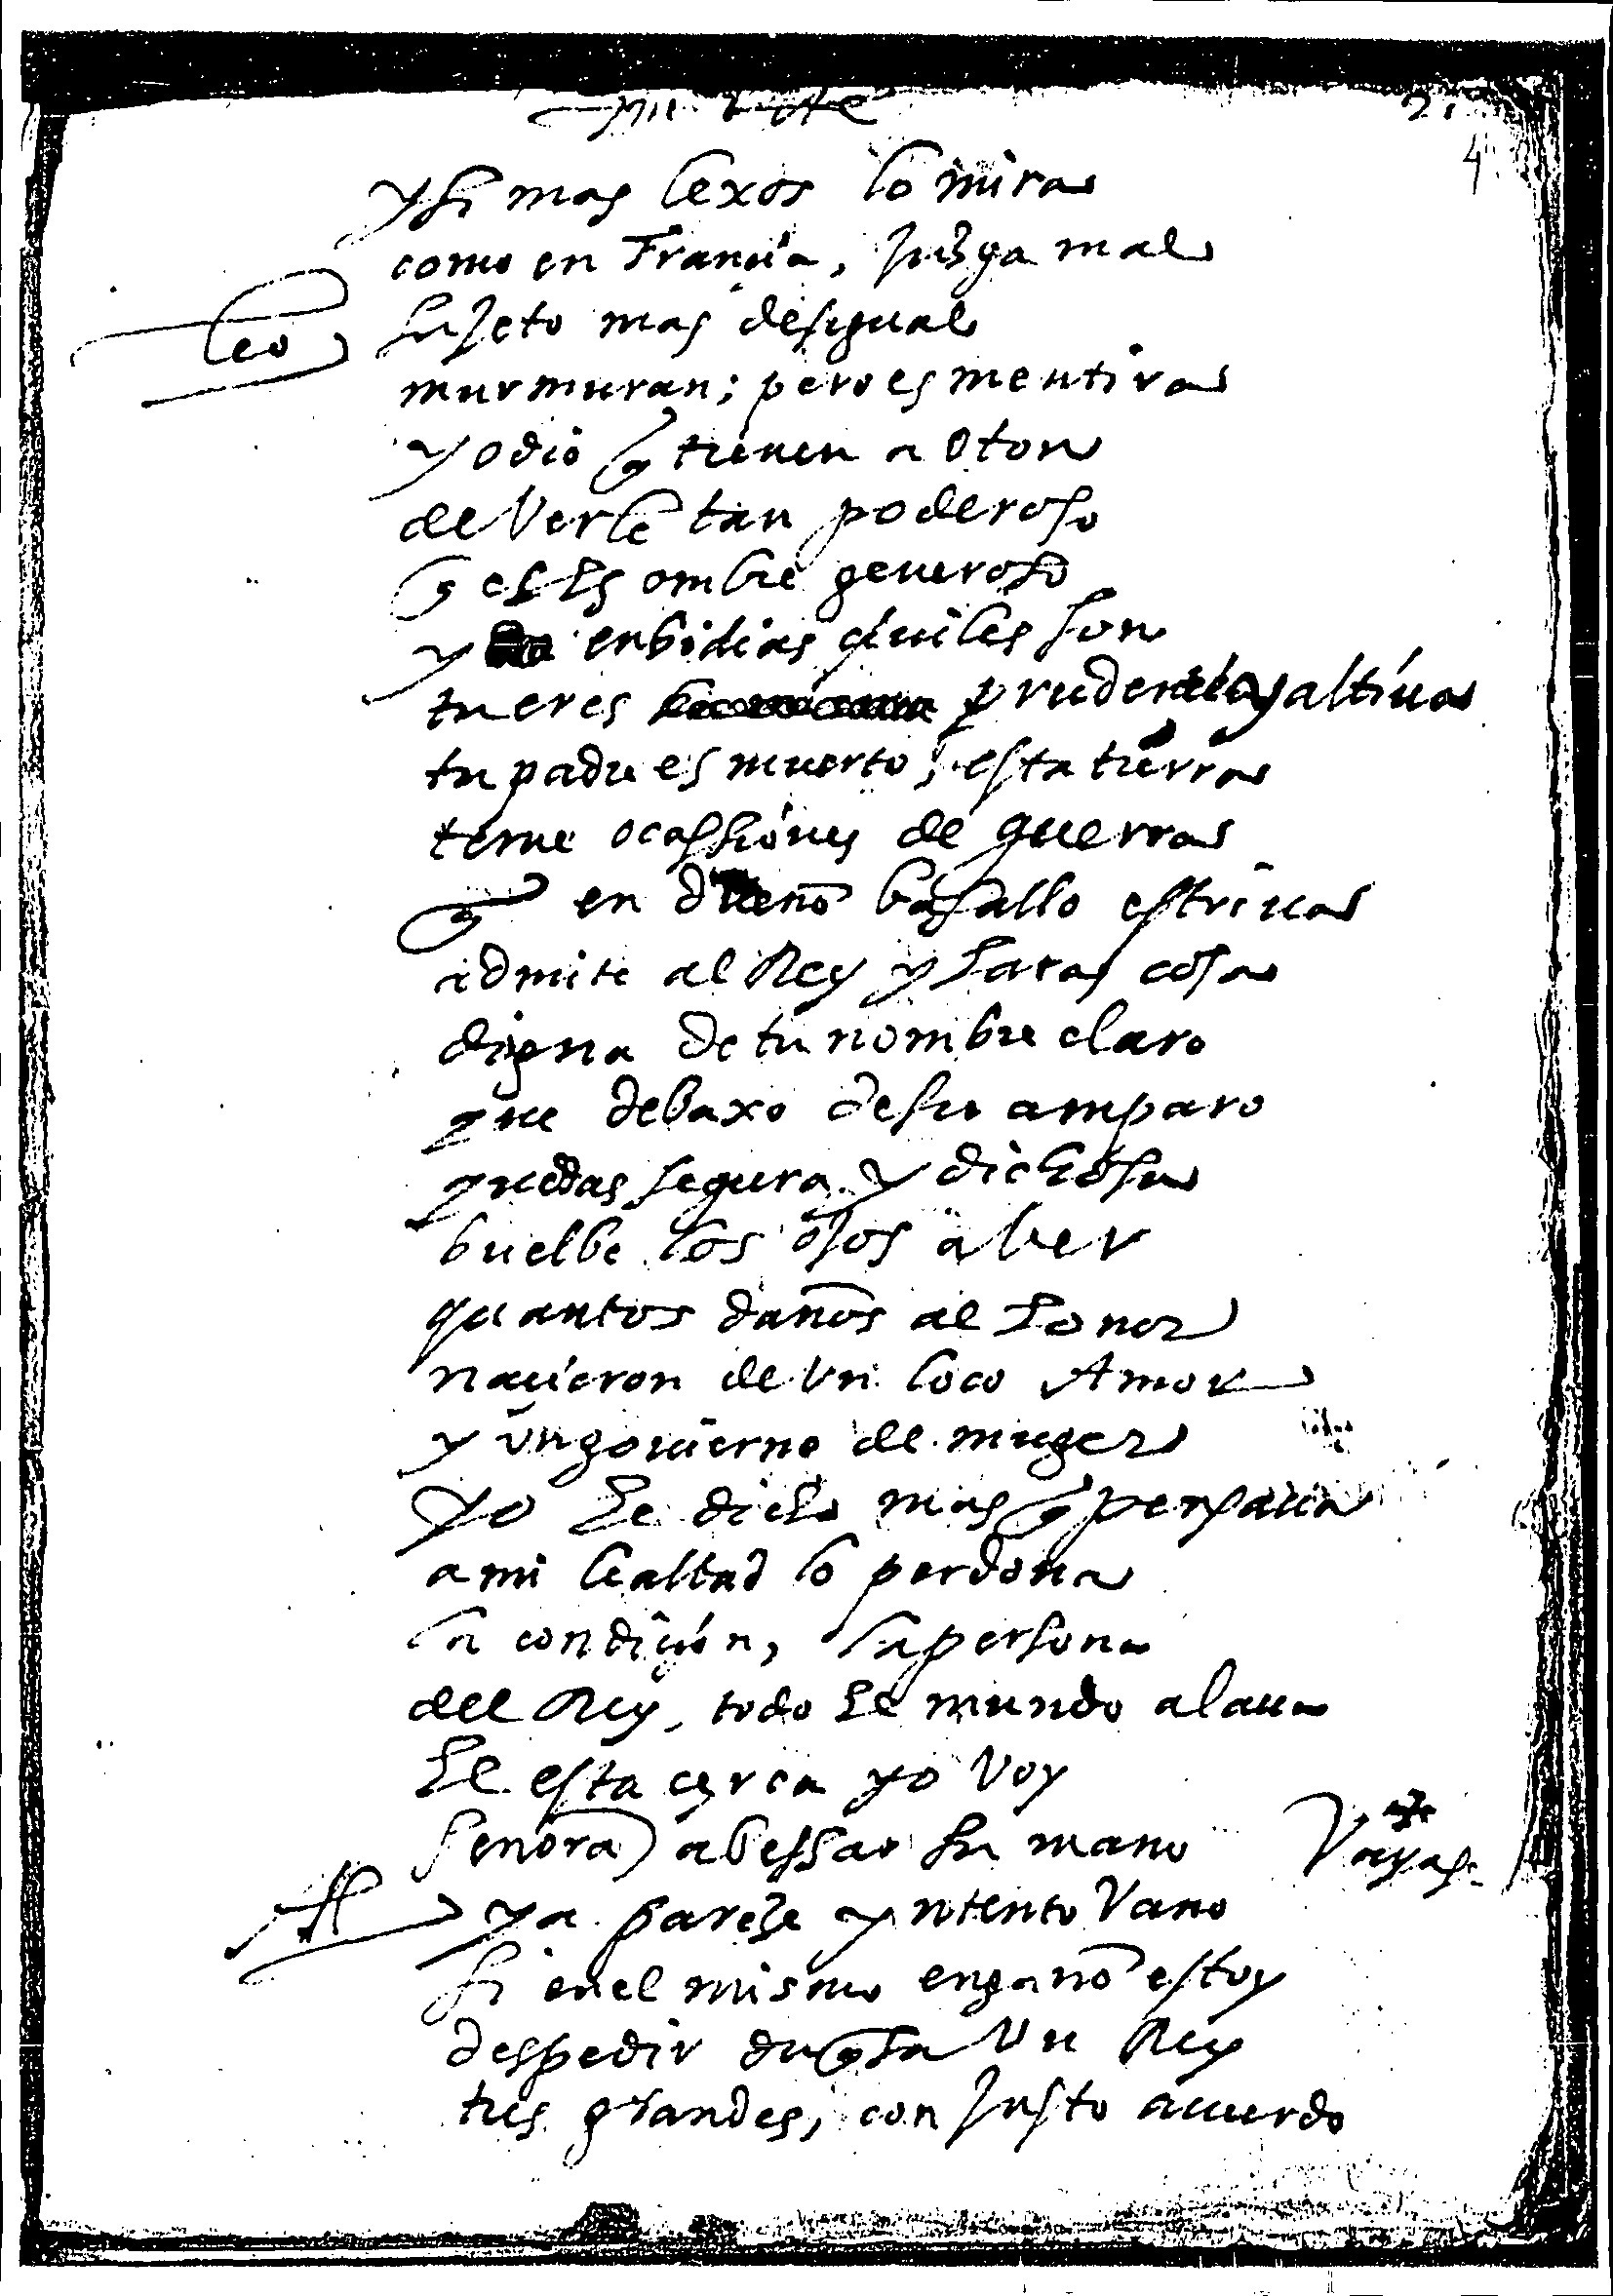 21
4
y si mas lexos lo mira
como en Francia, Juzga mal
Leo su Jeto mas desigual
murmuran; pero es mentira
y odio q tienen a Oton
de Verle tan poderoso
q es hombre generoso
y enbidias çiuiles son
tu eres prudente y altiua
tu padre es muerto, esta tierra
teme ocassiones de guerra
q en dueño basallo estriua
admite al Rey y haras cosa
digna de tu nombre claro
que debaxo de su amparo
quedas segura y dichosa
buelbe los ojos a ber
quantos daños al honor
naçieron de Vn loco Amor
y Vn govierno de muger
yo he dicho mas q pensaua
a mi lealtad lo perdona
la condiçion, la persona
del Rey, todo el mundo alaua
el esta çerca yo Voy
señora a bessar su mano Vayase
ya pareçe yntento Vano
si en el mismo engaño estoy
despedir duqsa Vn Rey
tus grandes, con Justo acuerdo